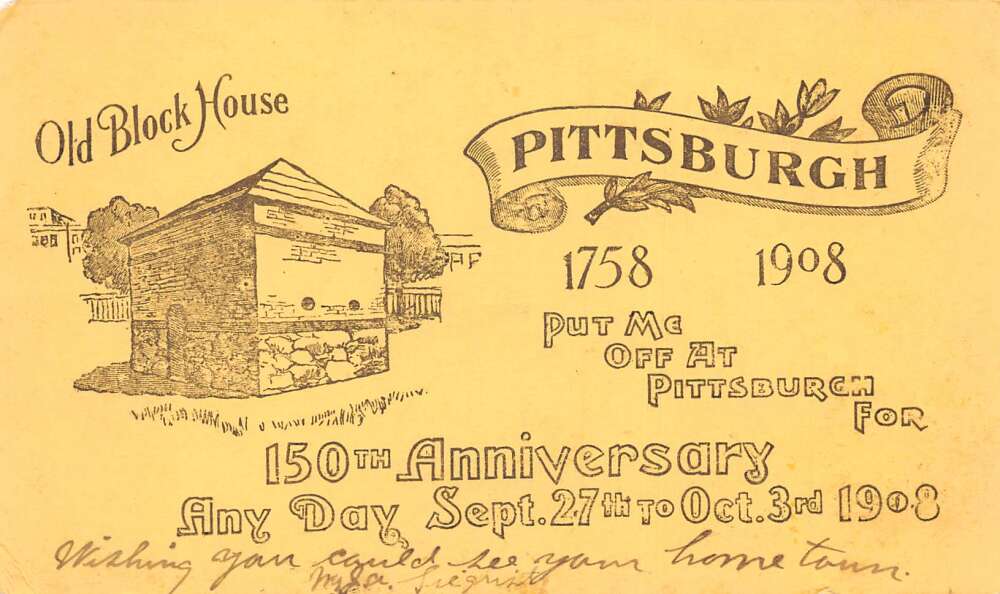 Old Block House
PITTSBURGH
1758 1908
Put Me
Off At
Pittsburgh
For
150th Anniversary
Any Day Sept. 27th to Oct. 3rd 1908
Wishing you could see your home town.